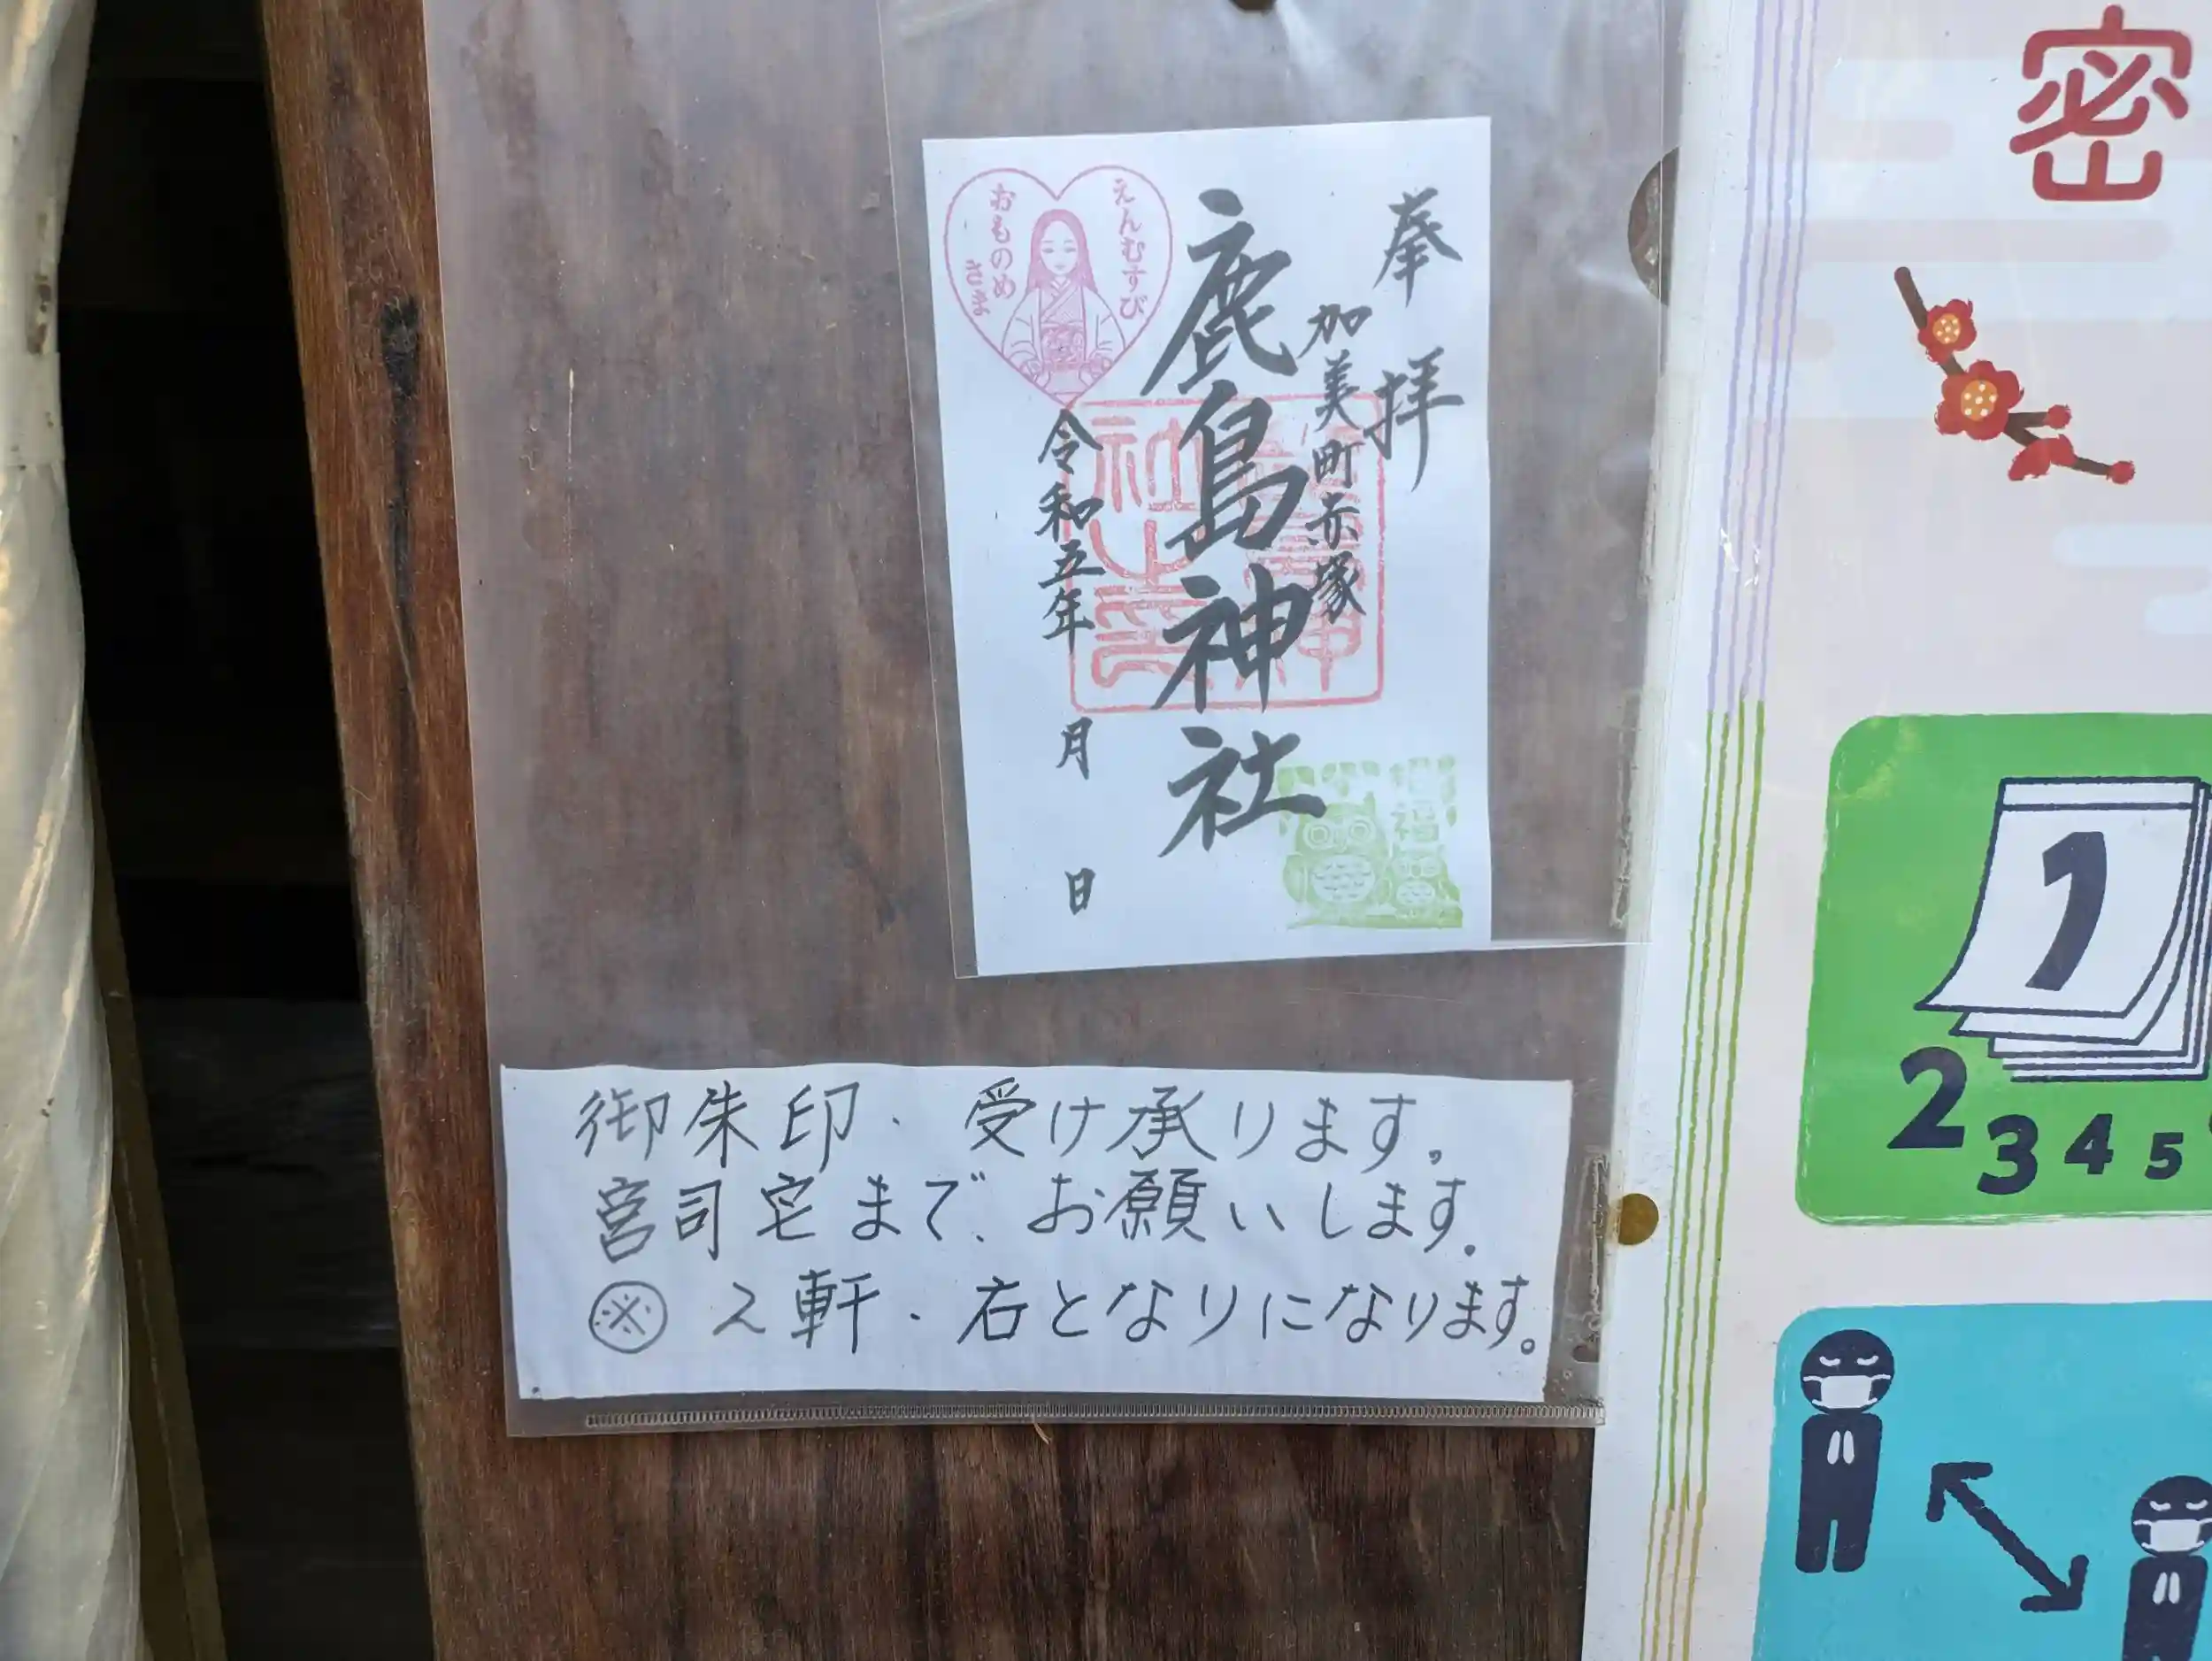 奉拝
加美町赤塚
鹿島神社
令和五年 月 日
えんむすび
おものめさま
福
御朱印.受け承ります。
宮司宅まで、お願いします。
※ 2軒.右となりになります。
密
1
2 3 4 5